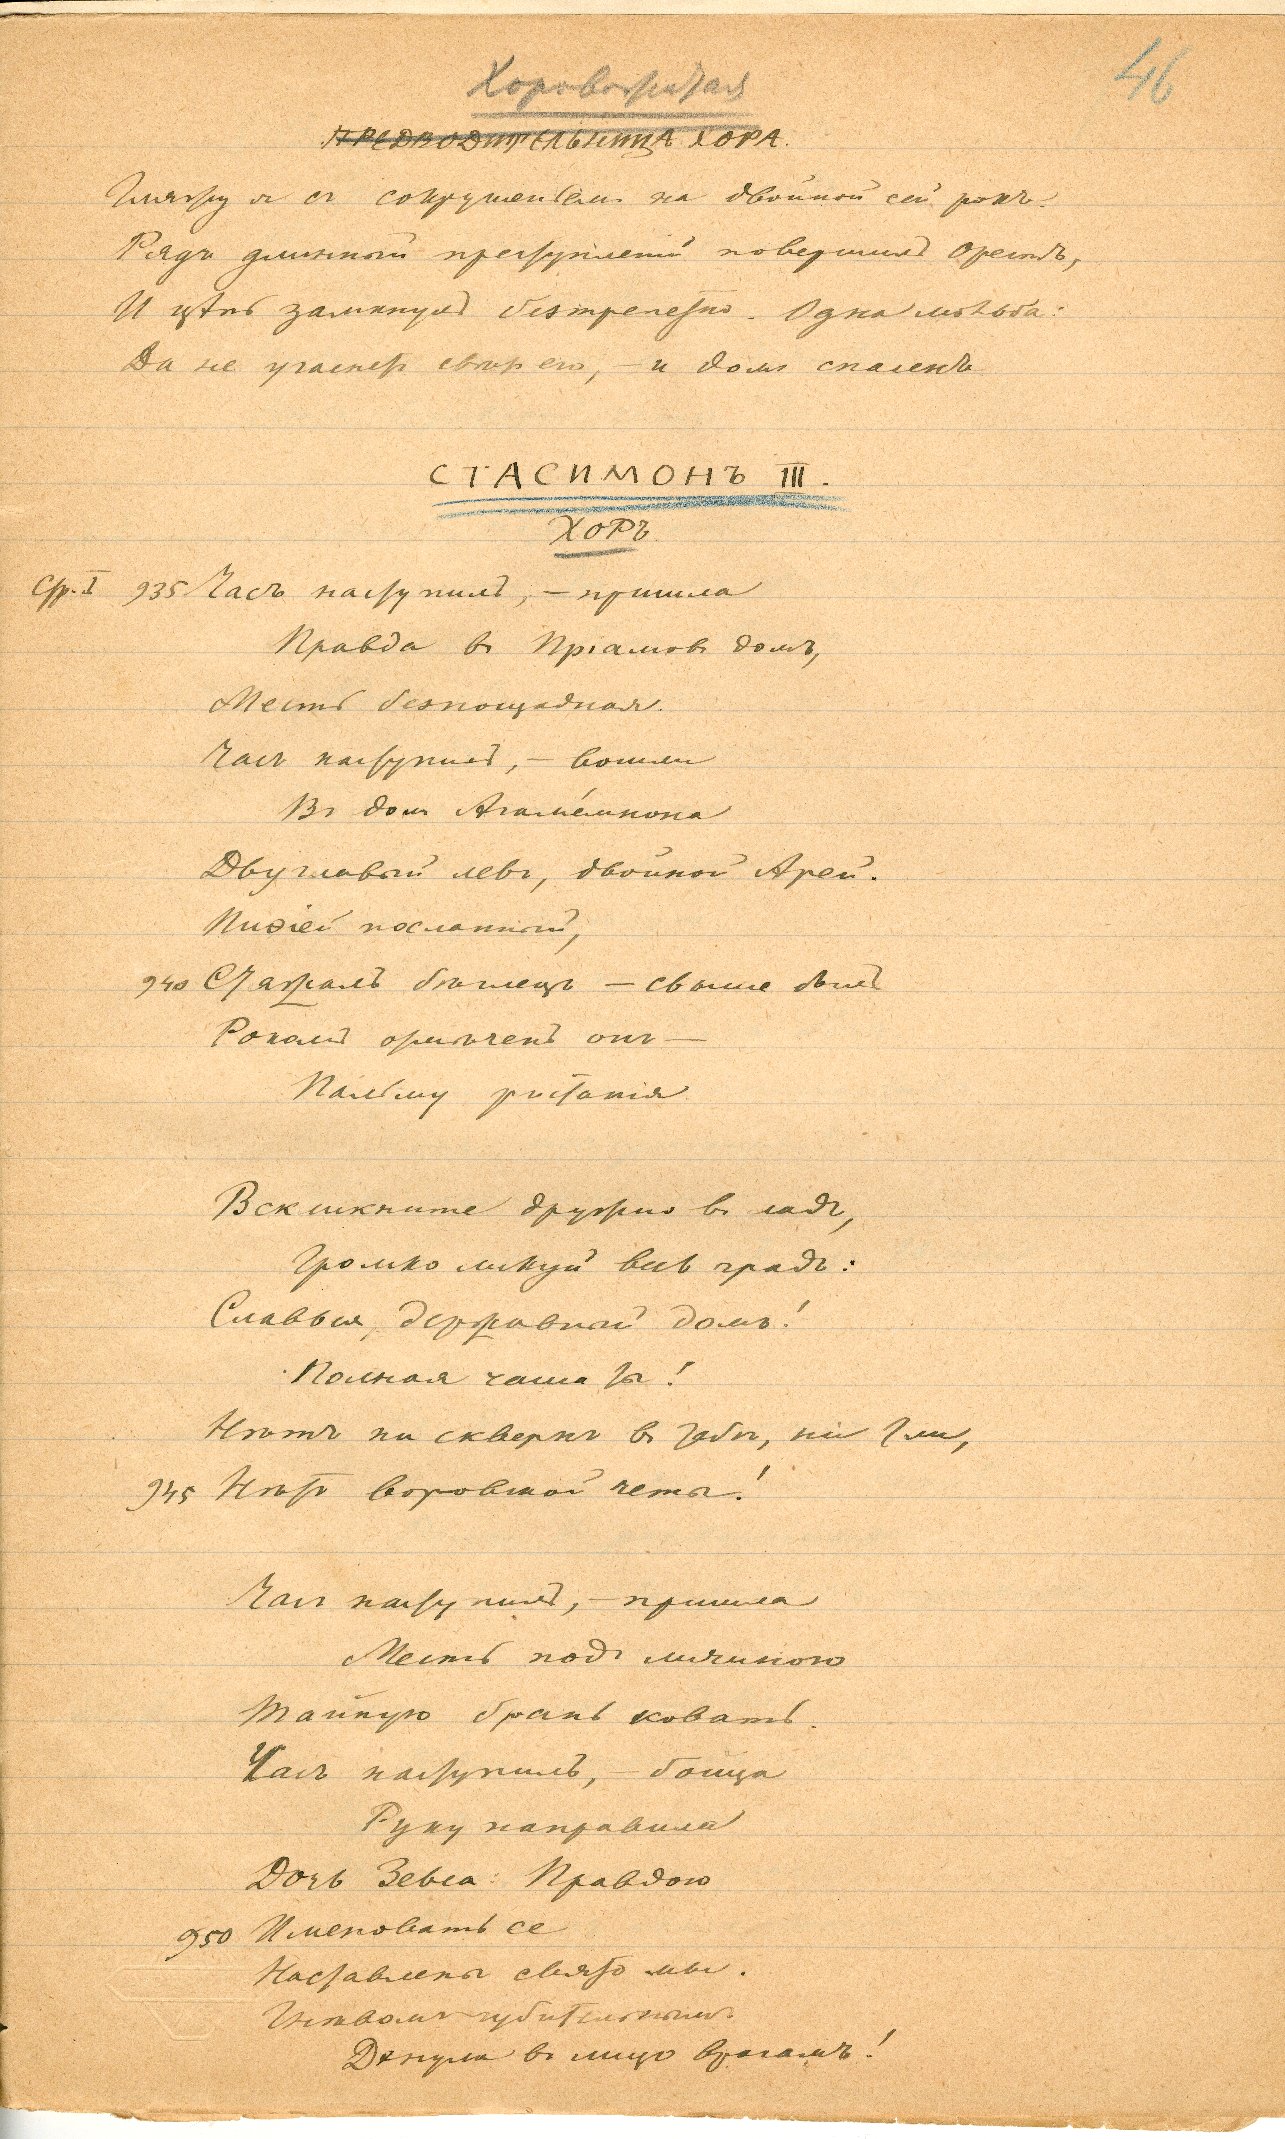 46
Хоровожатая
ПРЕДВОДИТЕЛЬНИЦА ХОРА.
Гляжу я съ сокрушеньемъ на двойной сей рокъ.
Рядъ длинный преступленій повершилъ Орестъ,
И цѣпь замкнулъ безтрепетно. Одна мольба:
Да не угаснетъ свѣтъ его, – и домъ спасенъ
СТАСИМОНЪ III.
ХОРЪ
Стр. I 935 Часъ наступилъ, – пришла
Правда въ Пріамовъ домъ,
Месть безпощадная.
Часъ наступилъ, – вошли
Въ домъ Агаме́мнона
Двуглавый левъ, двойной Арей.
Пиѳіей посланный,
940 Стяжалъ бѣглецъ – свыше былъ
Рокомъ отмѣченъ онъ –
Пальму ристанія
Воскликните дружно въ ладъ,
Громко ликуй весь градъ:
Славься, державный домъ!
Полная чаша ты!
Нѣтъ ни сквернъ въ тебѣ, ни тли,
945 Нѣтъ воровской четы!
Часъ наступилъ, – пришла
Месть подъ личиною
Тайную брань ковать.
Часъ наступилъ, – бойца
Руку направила
Дочь Зевса: Правдою
950 Именовать ее
Наставлены свято мы.
Гнѣвомъ губительнымъ
Дохнула въ лицо врагамъ!